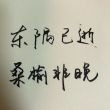 东隅已逝
桑榆非晚